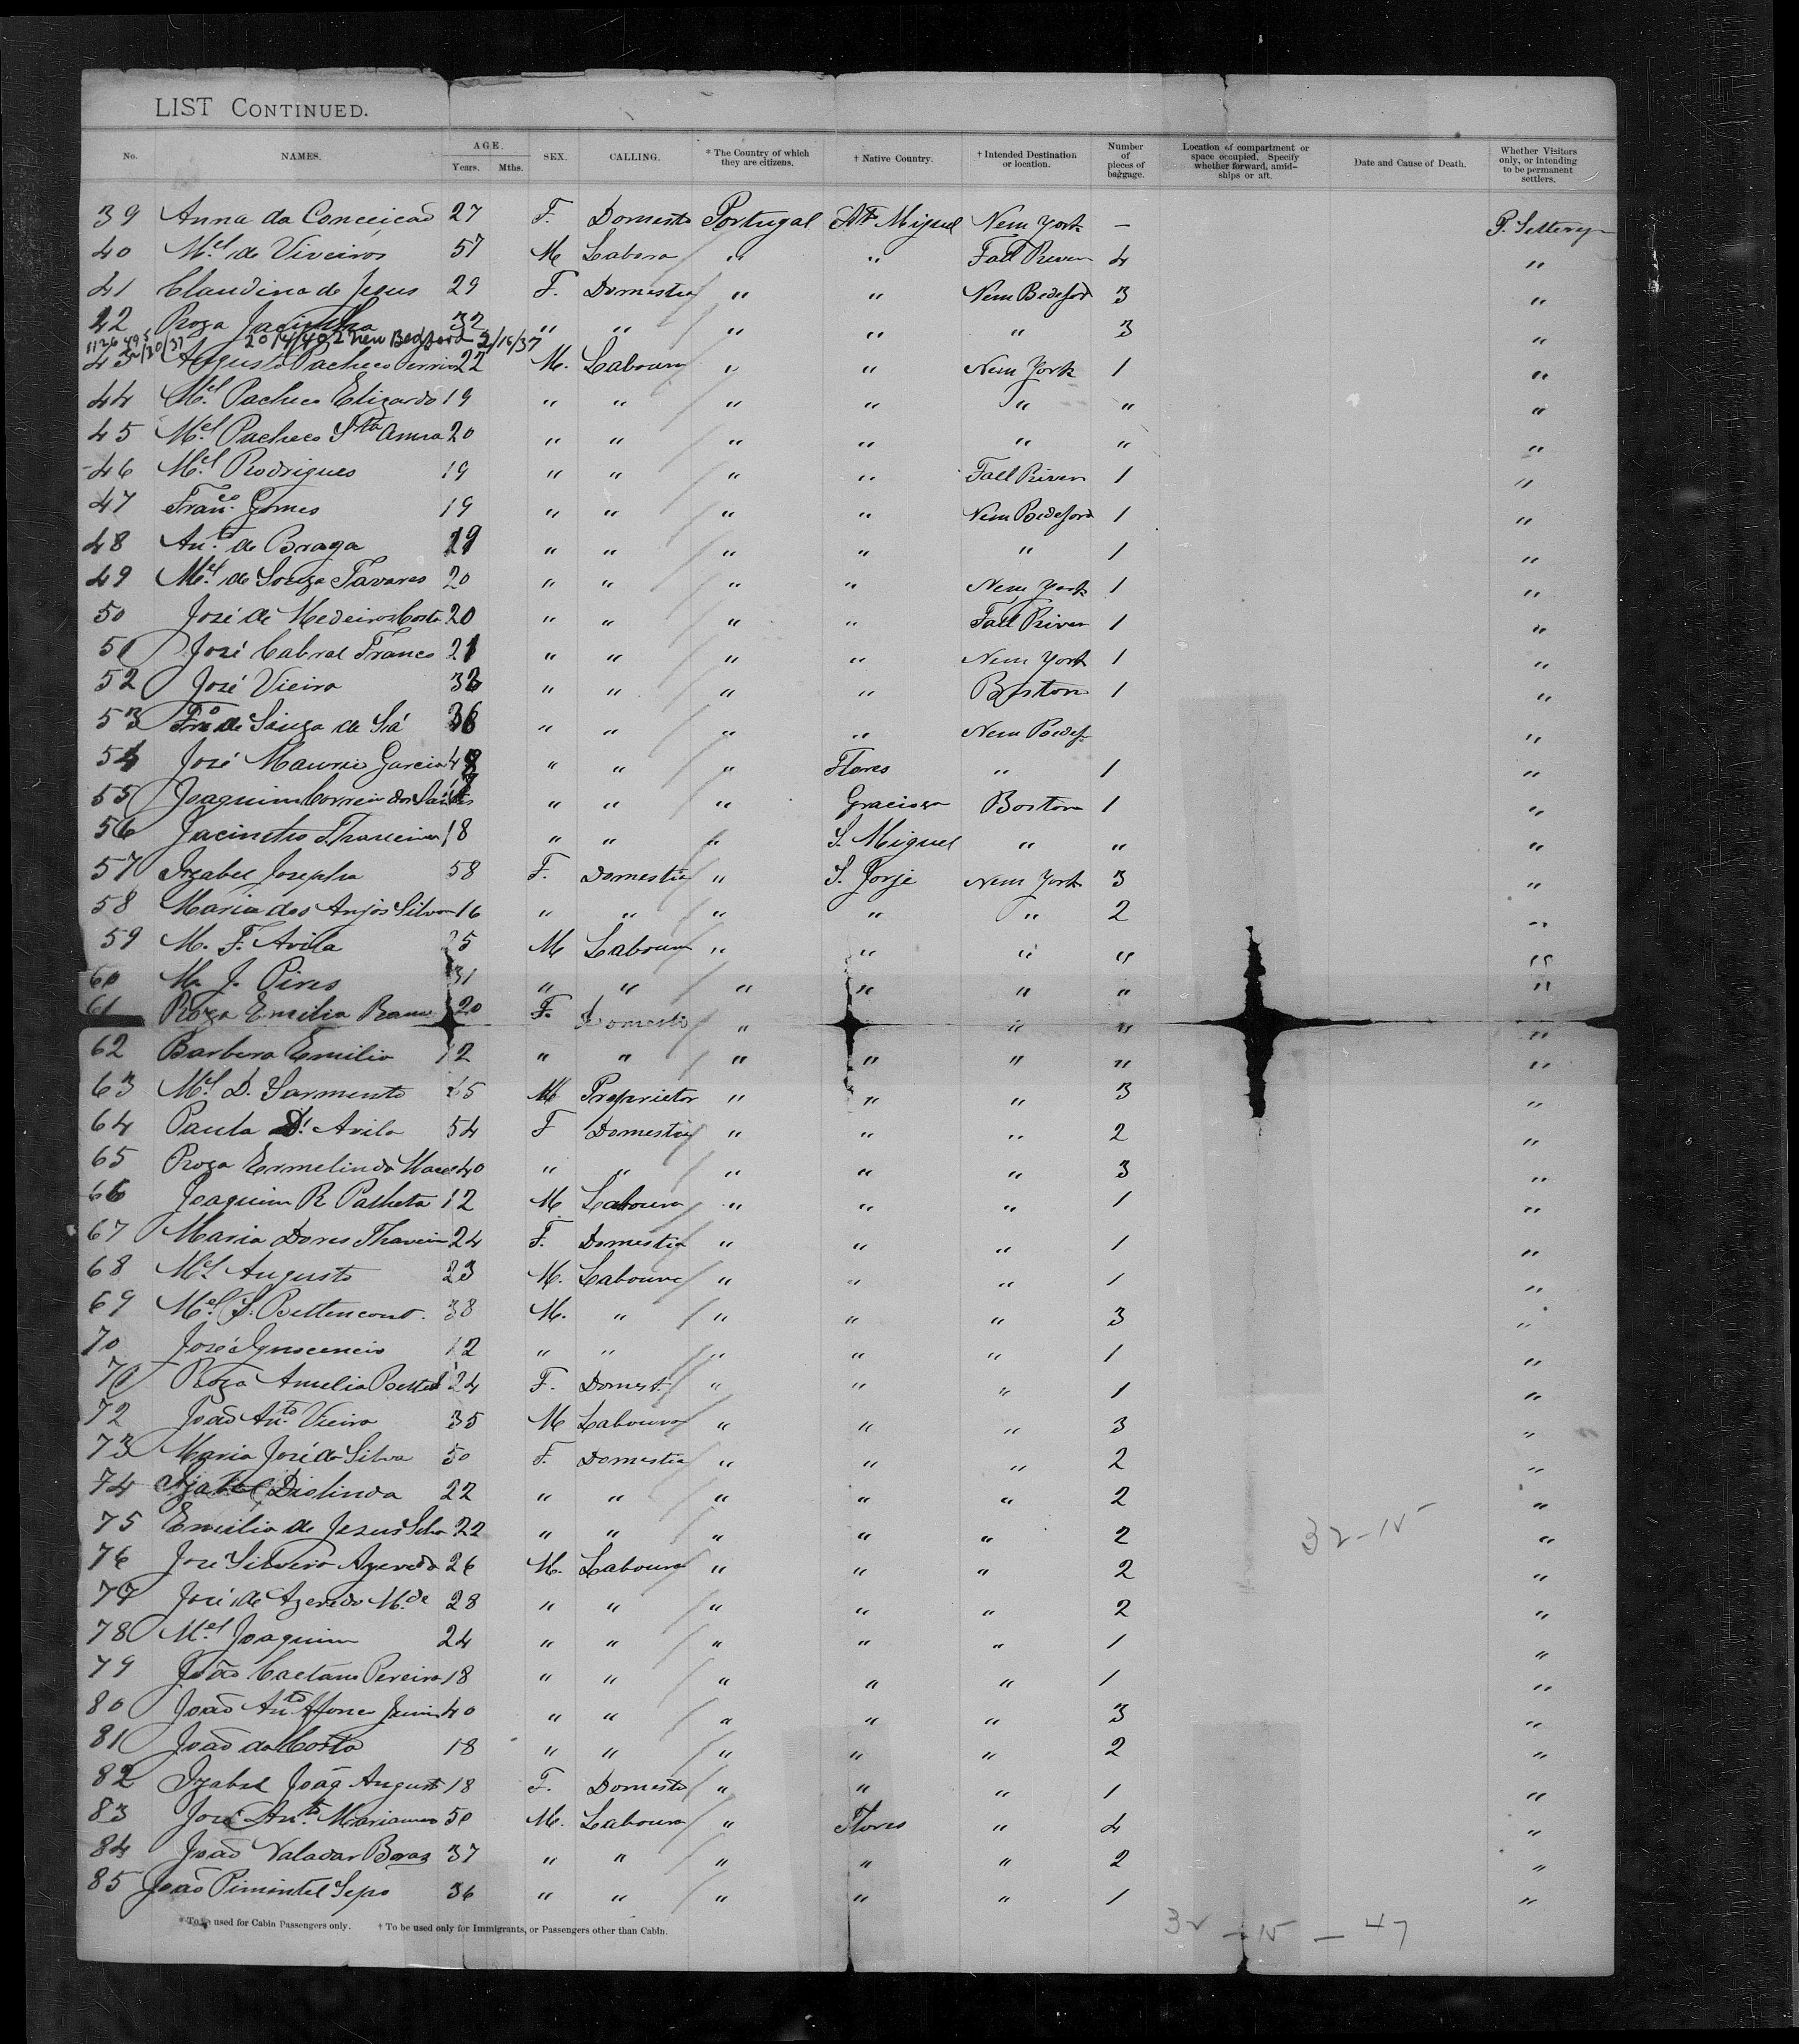 LIST CONTINUED.
No. NAMES. AGE. Years. Mths. SEX. CALLING. * The Country of which they are citizens. † Native Country. † Intended Destination or location. Number of pieces of baggage. Location of compartment or space occupied. Specify whether forward, amid-ships or aft. Date and Cause of Death. Whether Visitors only, or intending to be permanent settlers.
39 Anna da Conceicaõ 27 F. Domesto Portugal St. Miguel New York —
40 Mel. de Viveiros 57 M Labora " " Fall River 4 "
41 Claudina de Jesus 29 F. Domestic " " New Bedeford 3 "
42 Roza Jacintha 32 " " " " " 3 "
2014402 New Bedford 2/16/37
43 Augusto Pacheco 22 M. Labourer " " New York 1 "
44 Mel. Pacheco Elizardo 19 " " " " " " "
45 Mel. Pacheco Sta Anna 20 " " " " " " "
46 Mel. Rodrigues 19 " " " " Fall River 1 "
47 Franco. Gomes 19 " " " " New Bedeford 1 "
48 Anto. de Braga 19 " " " " " 1 "
49 Mel. de Souza Tavares 20 " " " " New York 1 "
50 José de Medeiros Costa 20 " " " " Fall River 1 "
51 José Cabral Franco 21 " " " " New York 1 "
52 José Vieira " " " " Boston 1 "
53 de Souza de Sá 36 " " " " New Bedef "
54 José Garcia " " " Flores " 1 "
55 Joaquim Correia dos Santos " " " Graciosa Boston 1 "
56 Jacintho 18 " " " S. Miguel " " "
57 Izabel Josepha 58 F. Domestic " S. Jorje New York 3 "
58 Maria dos Anjos Silva 16 " " " " " 2 "
59 M. F. Avila 25 M Labourer " " " " "
60 M. J. Pires 31 " " " " " " "
61 Roza Emilia 20 F. Domestic " " " "
62 Barbara Emilia 12 " " " " " " "
63 Mel. D. Sarmento M Proprietor " " " 3 "
64 Paula D'. Avila 54 F Domestic " " " 2 "
65 Roza Ermelinda 40 " " " " " 3 "
66 Joaquim R. Pacheta 12 M. Laboura " " " 1 "
67 Maria Dores 24 F. Domestic " " " 1 "
68 Mel. Augusto 23 M. Labourer " " " 1 "
69 Mel. S. Bettencourt. 38 M. " " " " 3 "
70 José Ignocencio 12 " " " " " 1 "
71 Roza Amelia 24 F. Domest. " " " 1 "
72 Joaõ Anto. Vieira 35 M Labourer " " " 3 "
73 Maria José da Silva 50 F. Domestic " " " 2 "
74 Izabel Diolinda 22 " " " " " 2 "
75 Emilia de Jesus Silva 22 " " " " " 2 "
32-15
76 José Silveira Azevedo 26 M. Labourer " " " 2 "
77 José de Azevedo Mde 28 " " " " " 2 "
78 Mel. Joaquim 24 " " " " " 1 "
79 Joaõ Caetano Pereira 18 " " " " " 1 "
80 Joaõ Anto. 40 " " " " " 3 "
81 Joaõ da Costa 18 " " " " " 2 "
82 Izabel Joaq Augusto 18 F. Domesto " " " 1 "
83 José Anto. 50 M. Laboura " Flores " 4 "
84 Joaõ Valadar 37 " " " " " 2 "
85 Joaõ Pimintel 36 " " " " " 1 "
* To be used for Cabin Passengers only. † To be used only for Immigrants, or Passengers other than Cabin.
32 — 15 — 47